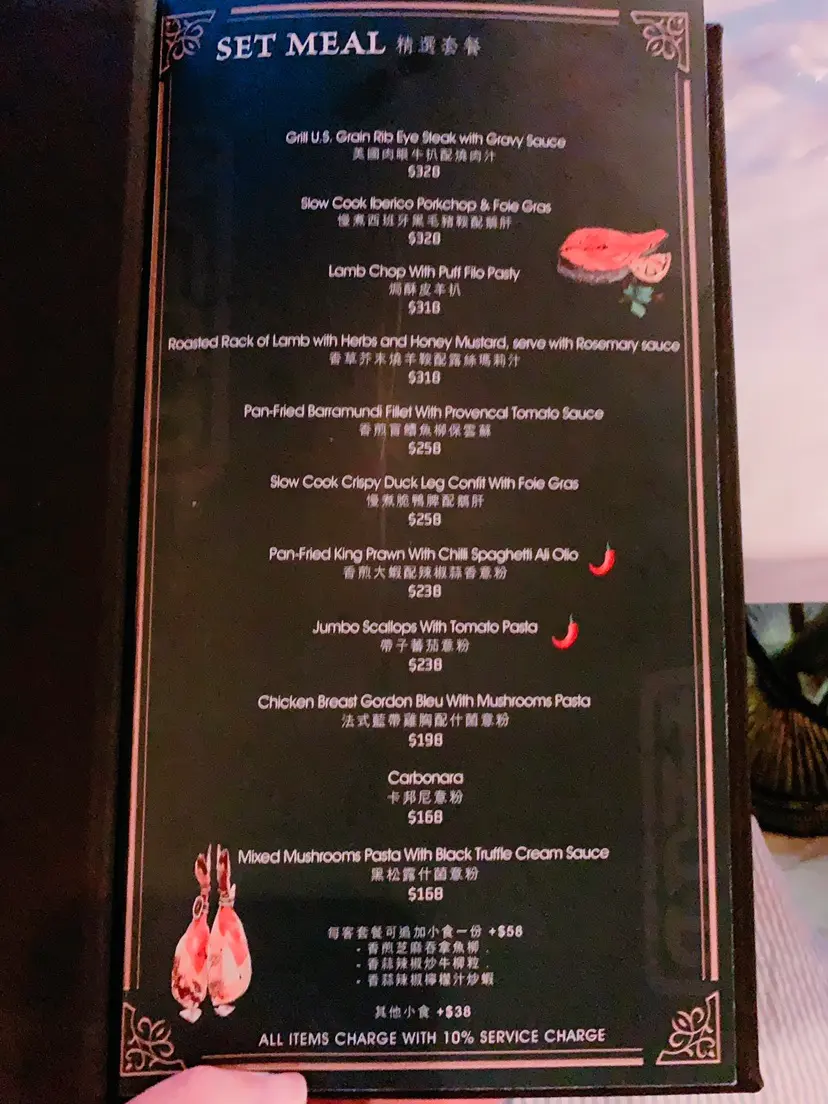 SET MEAL 精選套餐
Grill U.S. Grain Rib Eye Steak with Gravy Sauce
美國肉眼牛扒配燒肉汁
$328
Slow Cook Iberico Porkchop & Foie Gras
慢煮西班牙黑毛豬鞍配鵝肝
$328
Lamb Chop With Puff Filo Pasty
焗酥皮羊扒
$318
Roasted Rack of Lamb with Herbs and Honey Mustard, serve with Rosemary sauce
香草芥末燒羊鞍配露絲瑪莉汁
$318
Pan-Fried Barramundi Fillet With Provencal Tomato Sauce
香煎盲鰽魚柳保雲蘇
$258
Slow Cook Crispy Duck Leg Confit With Foie Gras
慢煮脆鴨脾配鵝肝
$258
Pan-Fried King Prawn With Chilli Spaghetti Ali Olio
香煎大蝦配辣椒蒜香意粉
$238
Jumbo Scallops With Tomato Pasta
帶子蕃茄意粉
$238
Chicken Breast Gordon Bleu With Mushrooms Pasta
法式藍帶雞胸配什菌意粉
$198
Carbonara
卡邦尼意粉
$168
Mixed Mushrooms Pasta With Black Truffle Cream Sauce
黑松露什菌意粉
$168
每客套餐可追加小食一份 +$58
- 香煎芝麻吞拿魚柳
- 香蒜辣椒炒牛柳粒
- 香蒜辣椒檸檬汁炒蝦
其他小食 +$38
ALL ITEMS CHARGE WITH 10% SERVICE CHARGE